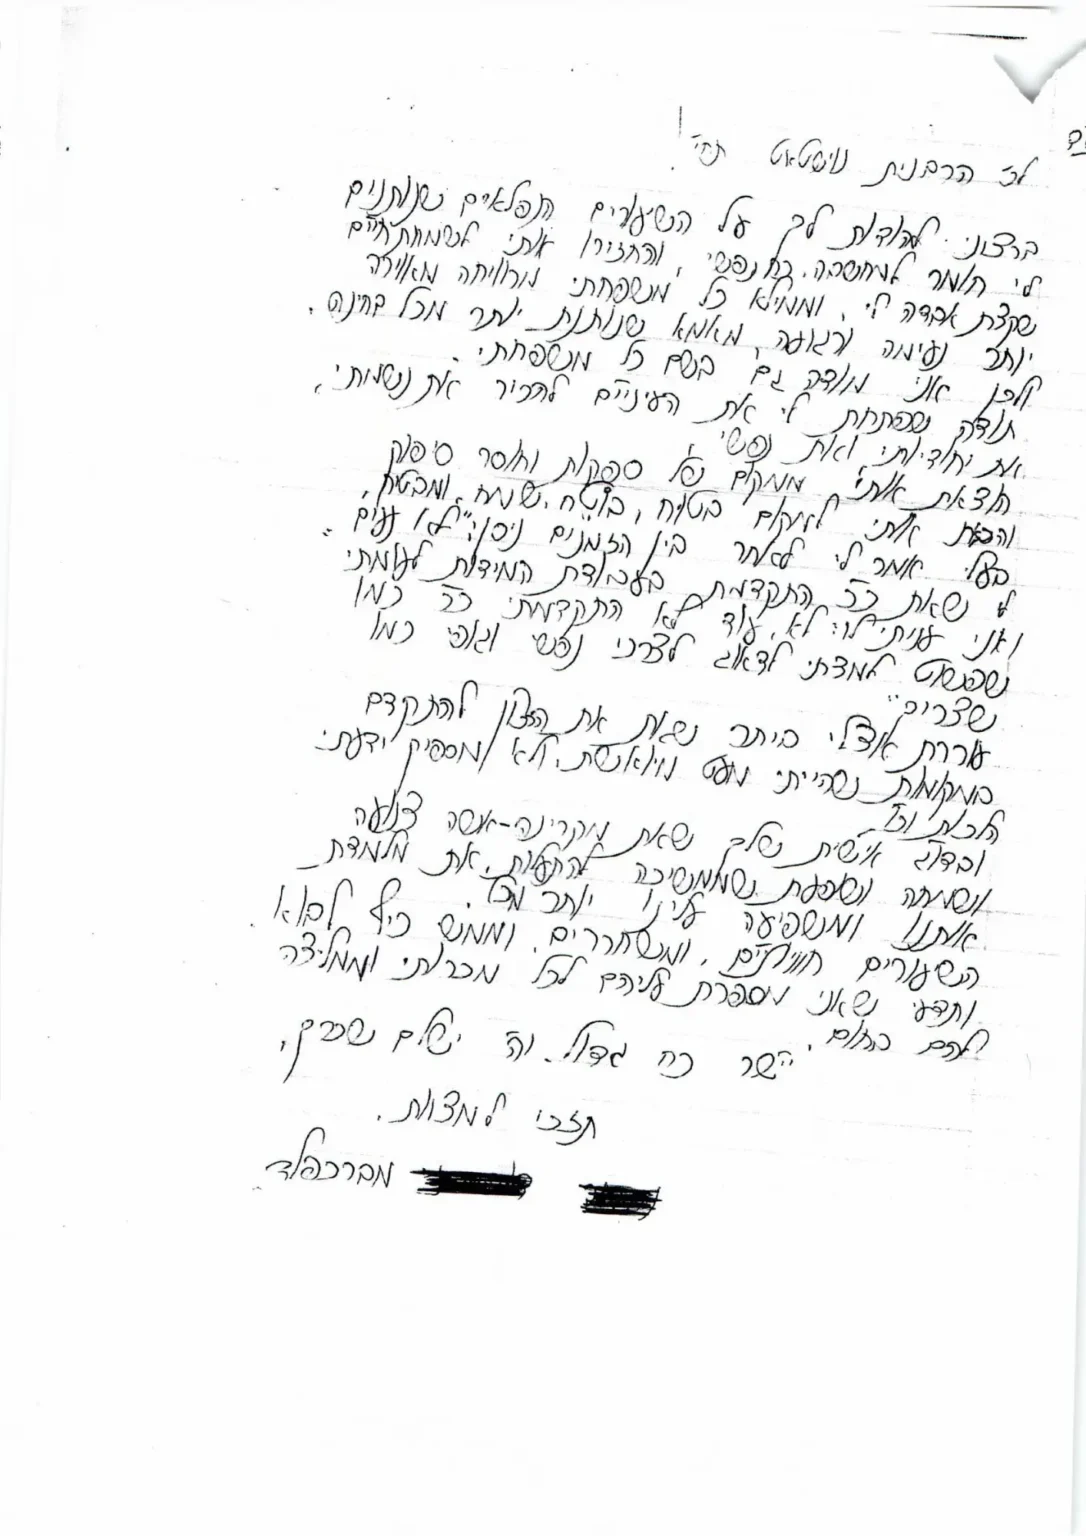 לכ' הרבנית נוישטאט תחי'
ברצוני להודות לך על השיעורים הנפלאים שנותנים
לי חומר למחשבה, כח נפשי, והחזירו אותי לשמחת חיים
שקצת אבדה לי, וממילא כל משפחתי מרוויחה מאוירה
יותר נעימה ורגועה, מאמא שנותנת יותר מכל בחינה.
ולכן אני מודה גם בשם כל משפחתי.
תודה שפתחת לי את העיניים להכיר את נשמתי,
את יחודיותי ואת נפשי.
הוצאת אותי ממקום של ספקות וחוסר סיפוק
והבאת אותי למקום בטוח, בוטח, שמח, ומבטיח.
בעלי אמר לי לאחר בין הזמנים ניסן: "לא נעים
לי שאת כ"כ התקדמת בעבודת המידות לעומתי
ואני עניתי לו: לא, עוד לא התקדמתי כ"כ כמו
שפשוט למדתי לדאוג לצרכי נפשי וגופי כמו
שצריך"
עוררת אצלי ביתר שאת את הרצון להתקדם
במקומות שהייתי מעט מיואשת, ולא מספיק ידעתי
הלכות וכו'
ובדוג' אישית שלך שאת מקרינה-אשה צנועה
ושמחה ושופעת שממשיכה להתעלות, את מלמדת
אותנו ומשפיעה עלינו יותר מכל.
השיעורים חווייתיים, ומשחררים, וממש כיף לבוא
ותדעי שאני מספרת עליהם לכל מכרותי וממליצה
להם בחום.
יישר כח גדול, וה' ישלם שכרך,
תזכי למצוות.
מברכפלד